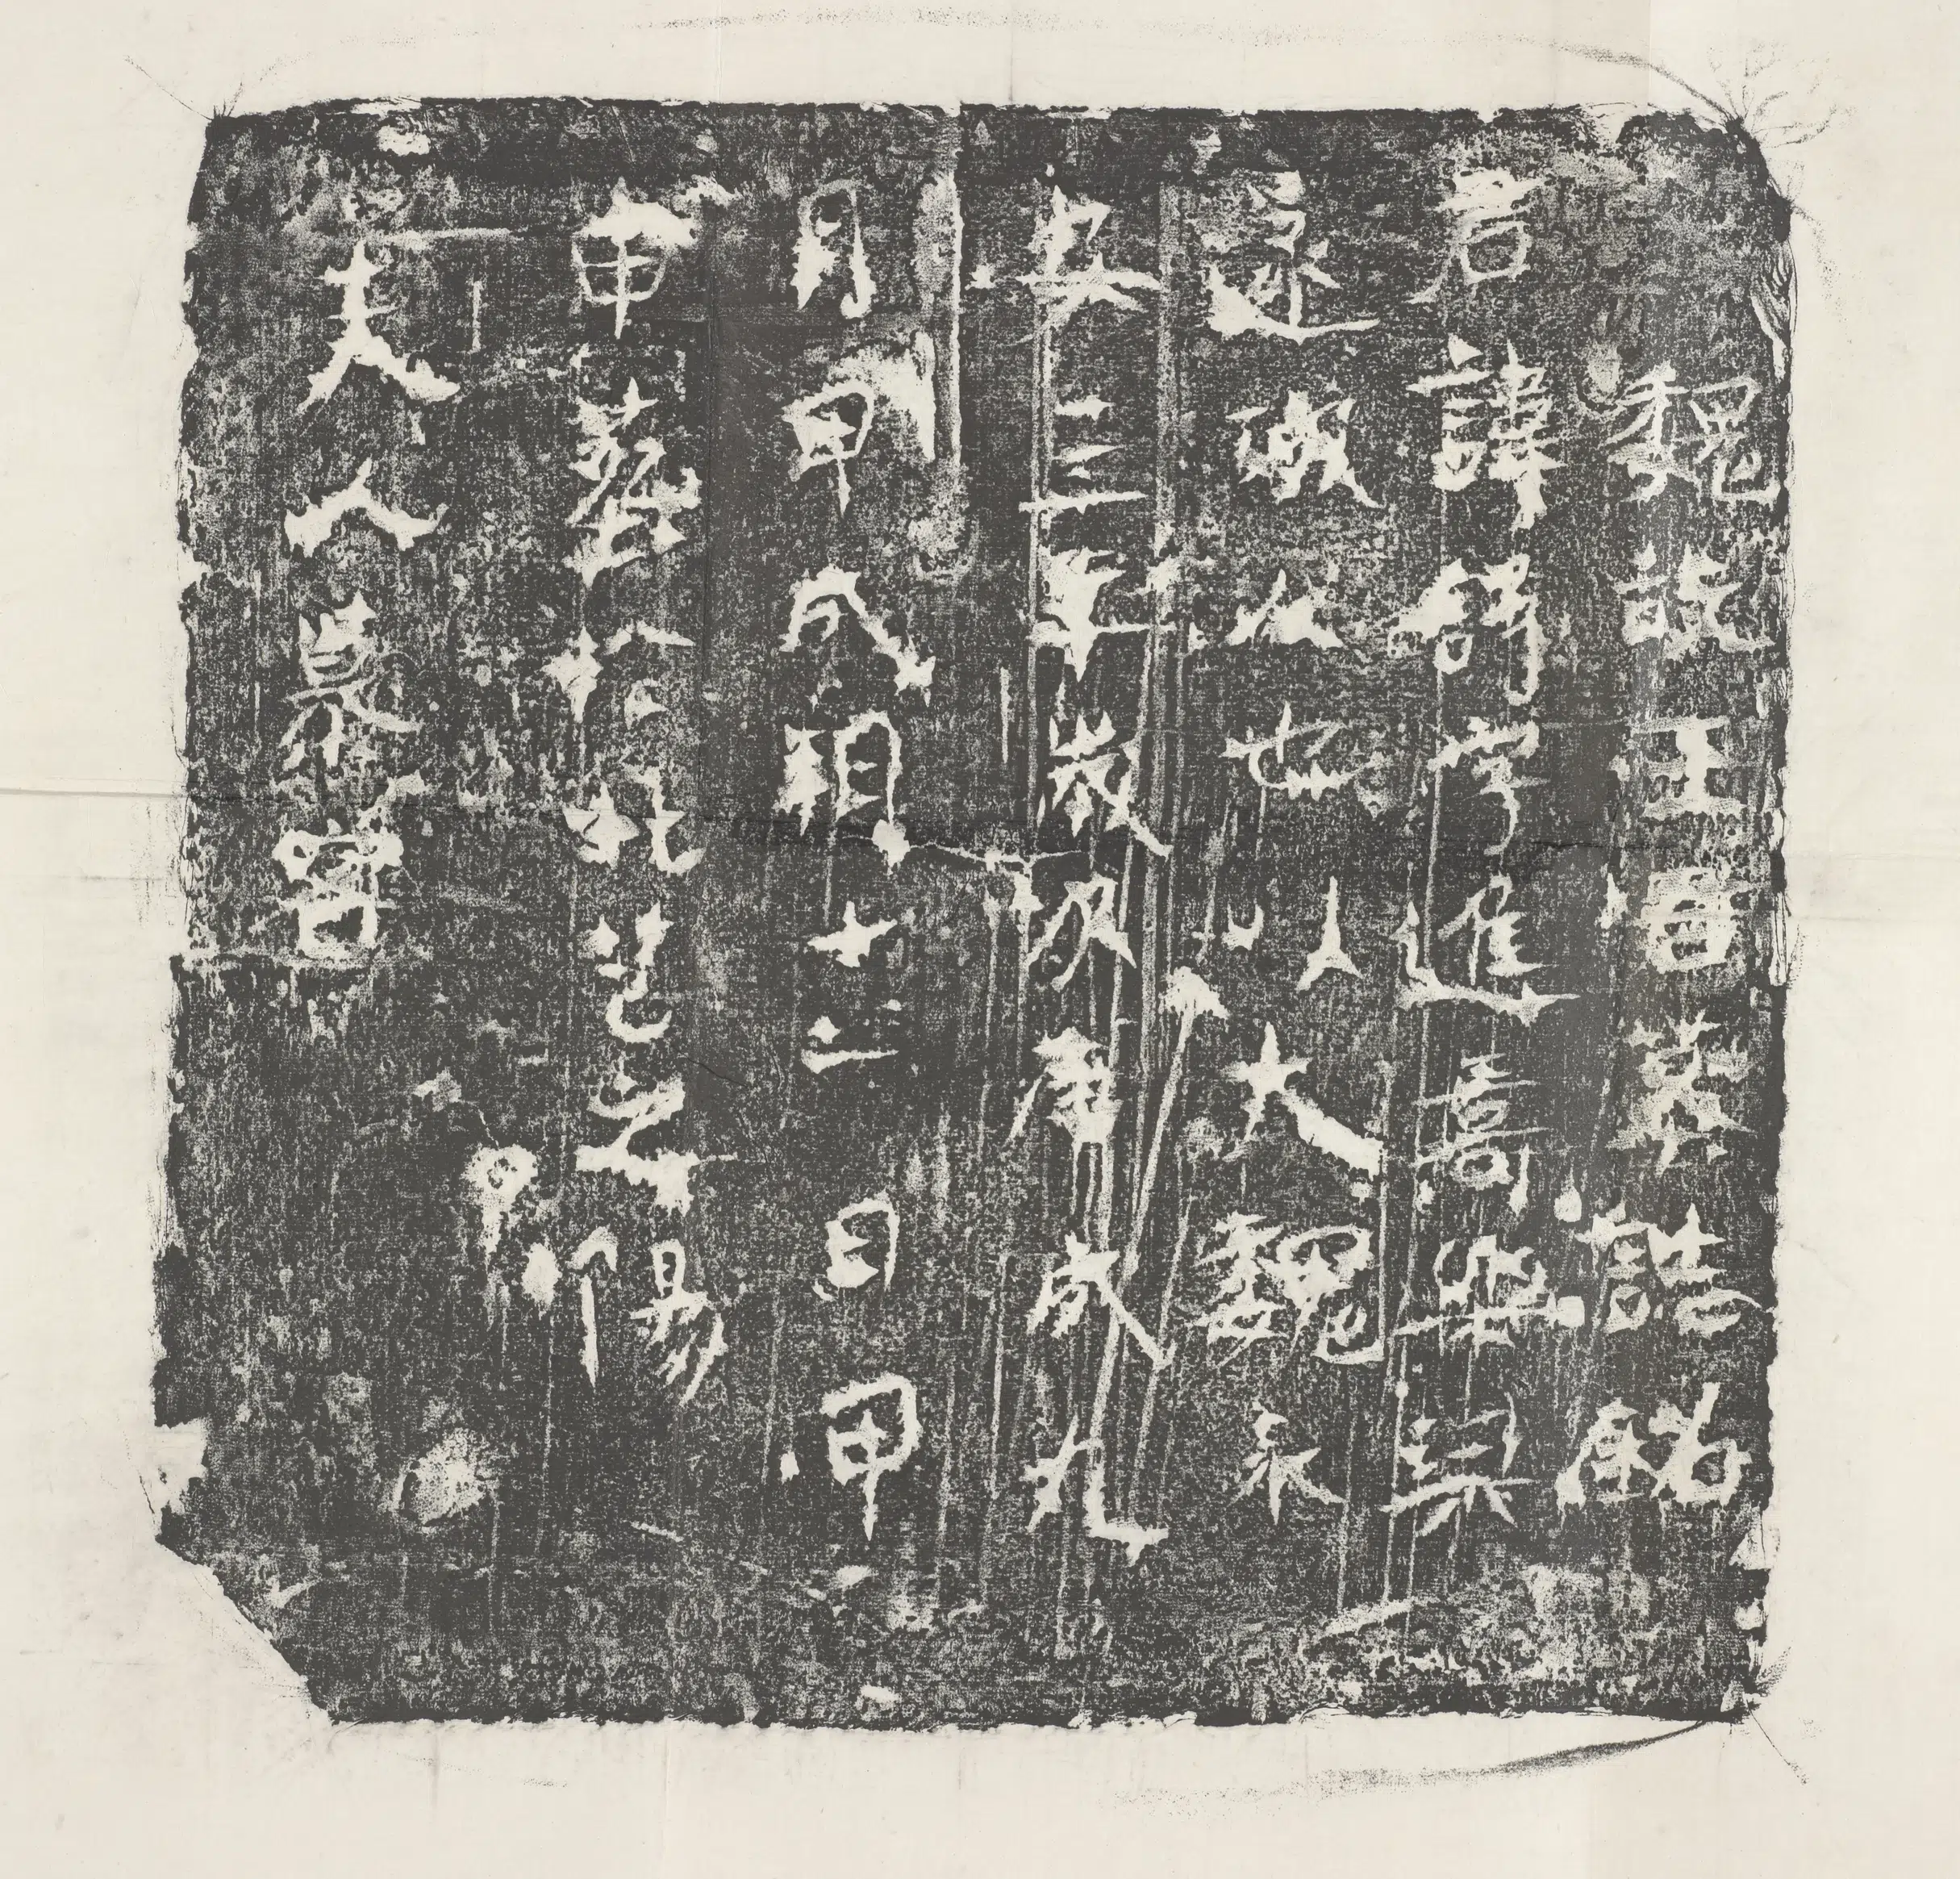 魏故王晋墓誌銘
君諱字進樂浪
遂城人也以大魏永
安三年歲次庚戌九
月甲戌朔十一日甲
申葬於北芒之陽
夫人